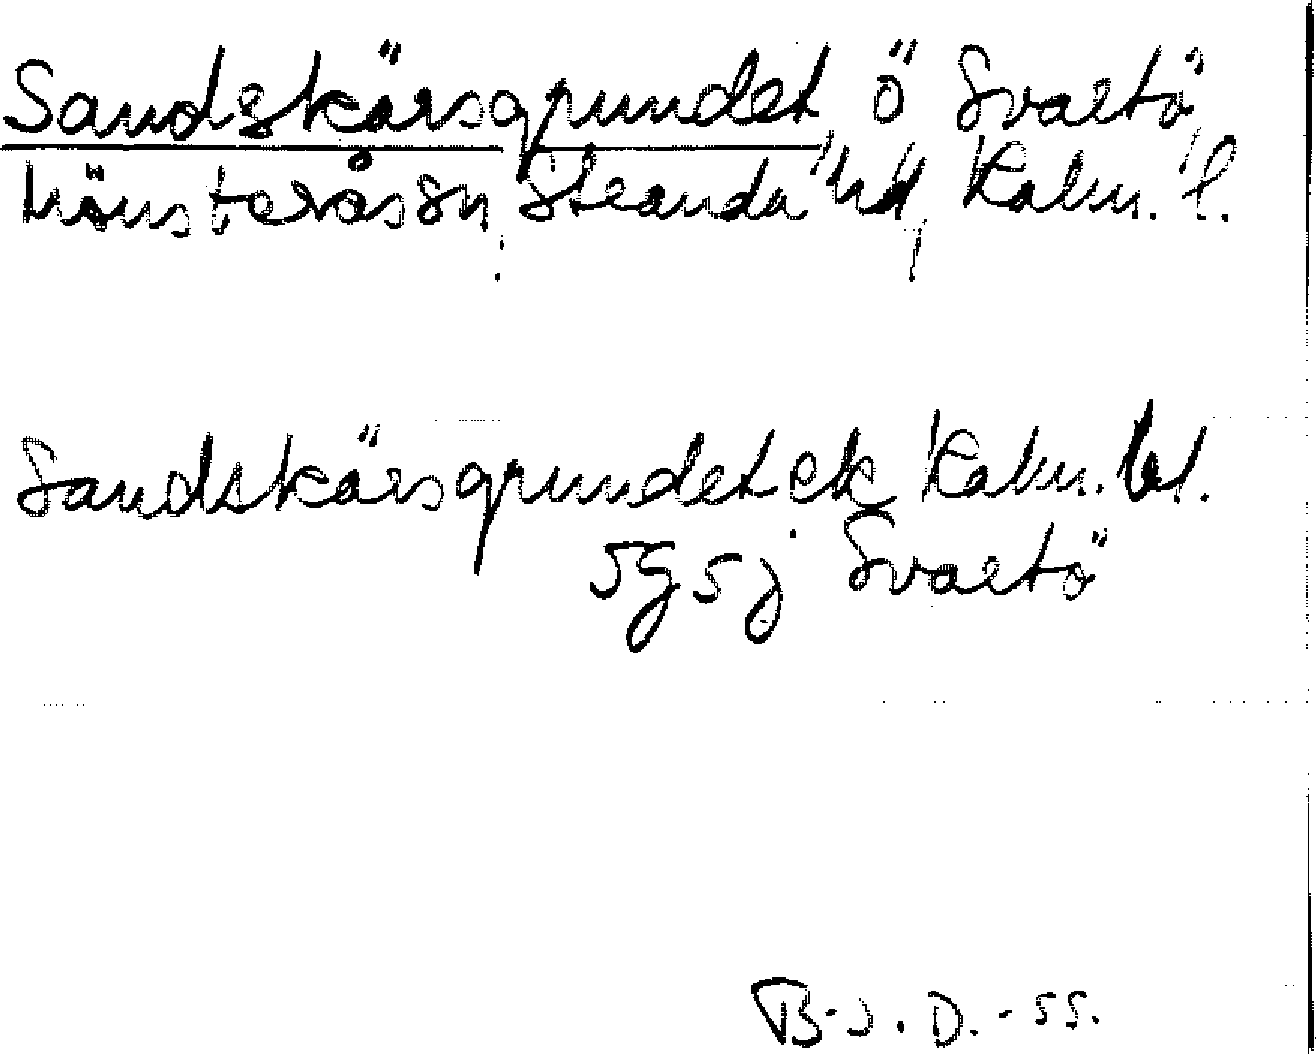 Sandskärsgrundet ö Svartö
Mönsterås sn, Stranda hd, Kalm. l.
Sandskärsgrundet ek Kalm. bl.
5g5j Svartö
B-J.D.-55.